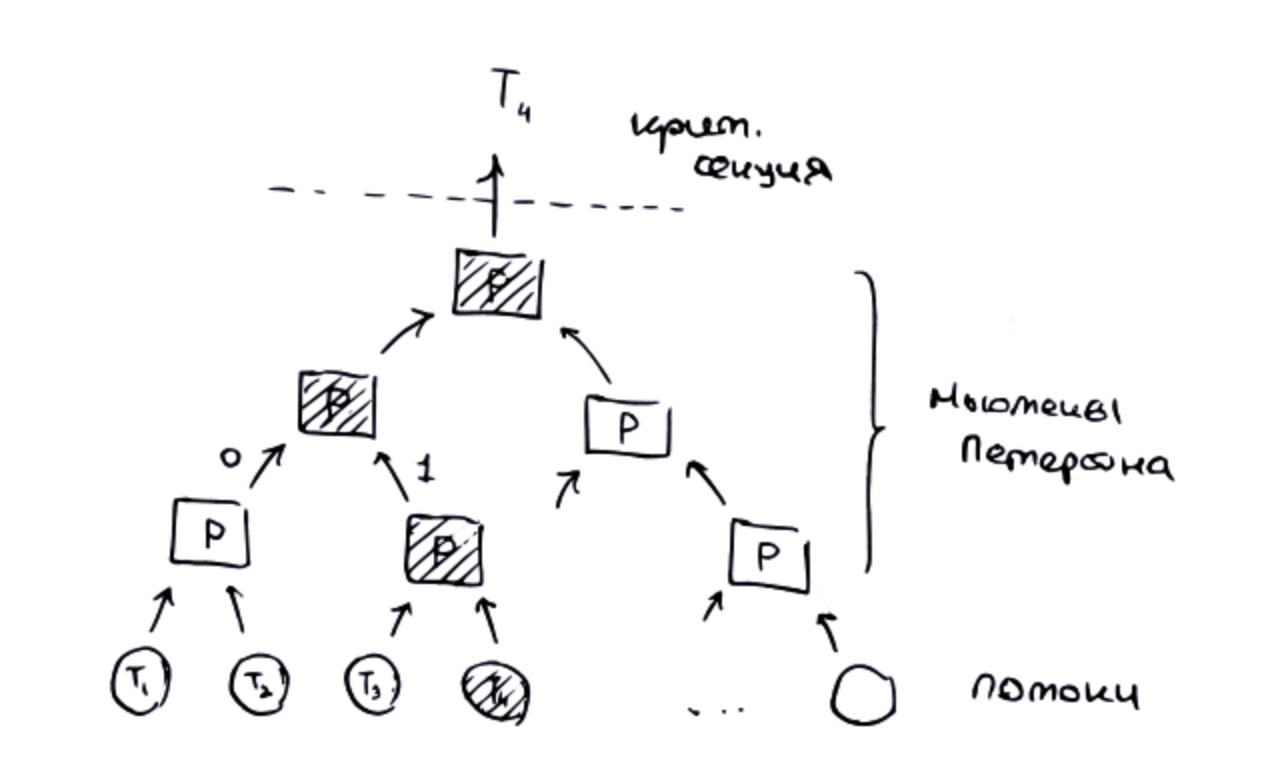 T₄
крит.
секция
P
P
P
Мьютексы
Петерсона
0
1
P
P
P
T₁ T₂ T₃ T₄
...
потоки